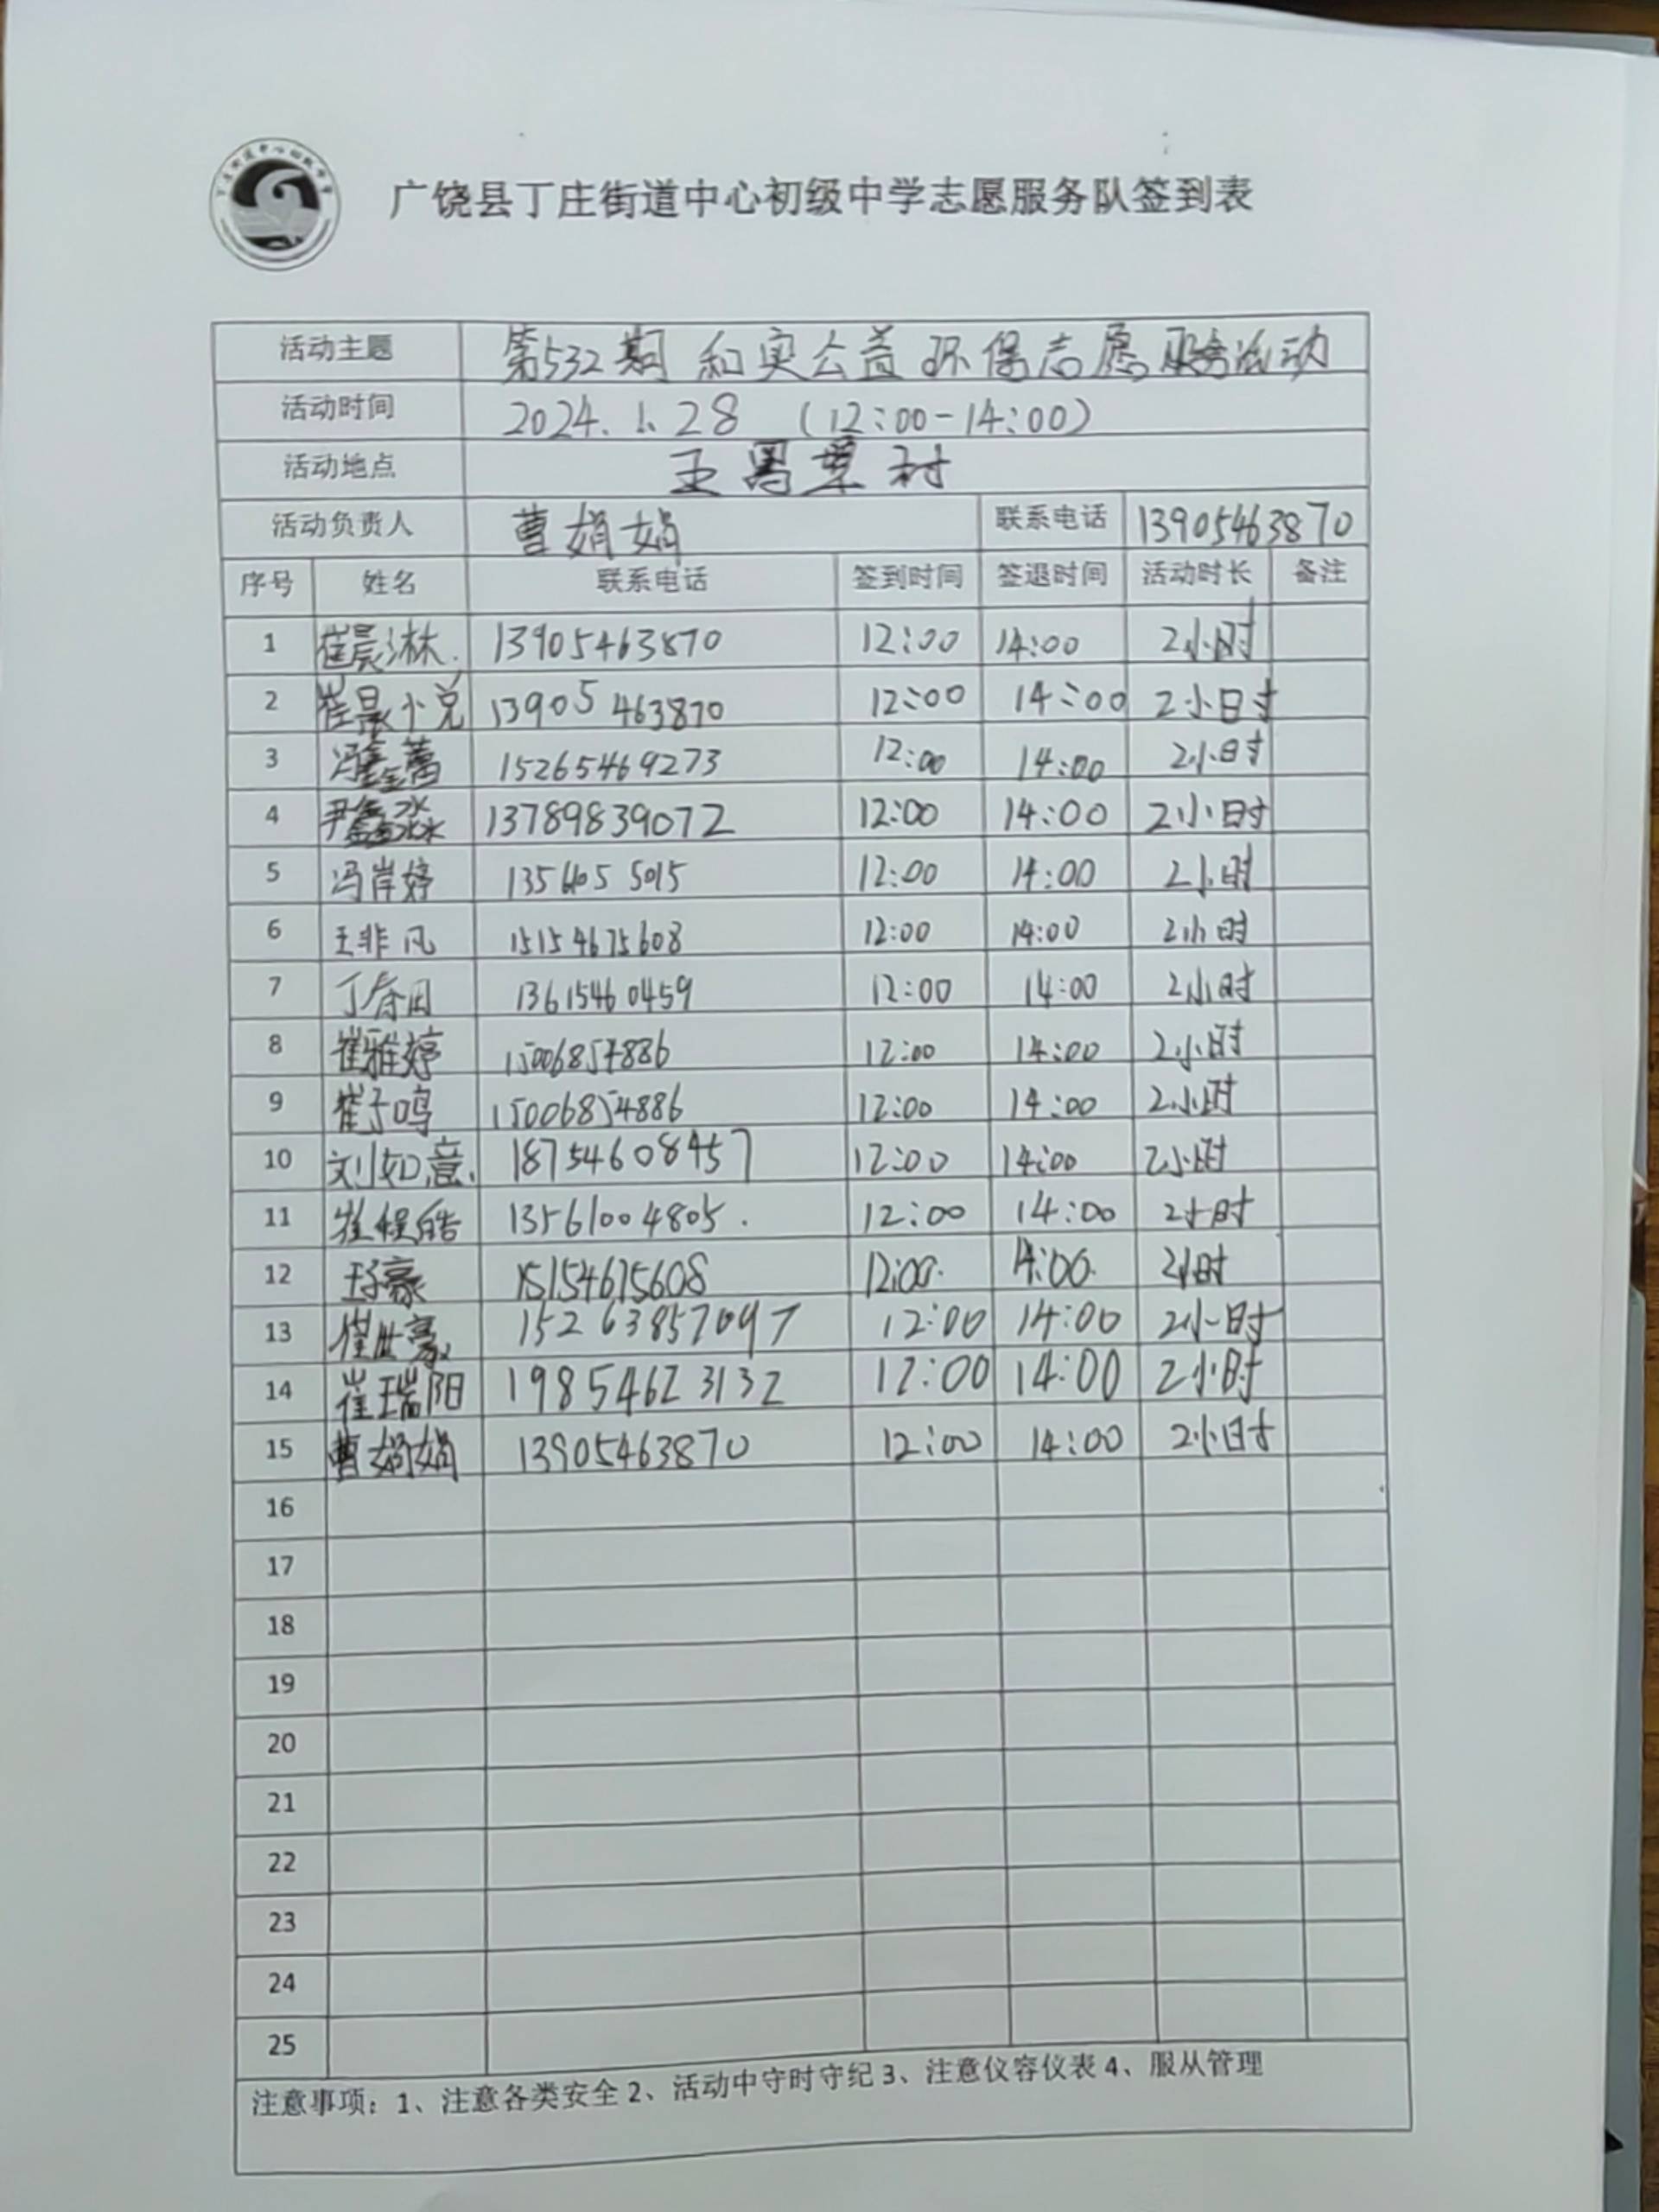 广饶县丁庄街道中心初级中学志愿服务队签到表
活动主题 第532期 和实公益环保志愿服务活动
活动时间 2024.1.28 (12:00-14:00)
活动地点 王署埠村
活动负责人 曹娟娟 联系电话 13905463870
序号 姓名 联系电话 签到时间 签退时间 活动时长 备注
1 崔晨淋 13905463870 12:00 14:00 2小时
2 崔晨悦 13905463870 12:00 14:00 2小时
3 冯鑫蕾 15265469273 12:00 14:00 2小时
4 尹鑫淼 13789839072 12:00 14:00 2小时
5 冯岸婷 12:00 14:00 2小时
6 王非凡 15154675608 12:00 14:00 2小时
7 13615460459 12:00 14:00 2小时
8 崔雅婷 15006854886 12:00 14:00 2小时
9 崔子鸣 15006854886 12:00 14:00 2小时
10 刘如意 18754608457 12:00 14:00 2小时
11 13561004805 12:00 14:00 2小时
12 王子豪 15154675608 12:00 14:00 2小时
13 崔世豪 15263857097 12:00 14:00 2小时
14 崔瑞阳 19854623132 12:00 14:00 2小时
15 曹娟娟 13905463870 12:00 14:00 2小时
16
17
18
19
20
21
22
23
24
25
注意事项：1、注意各类安全 2、活动中守时守纪 3、注意仪容仪表 4、服从管理